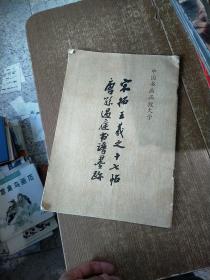 中国书画函授大学
宋拓王羲之十七帖
唐孙过庭书谱墨迹